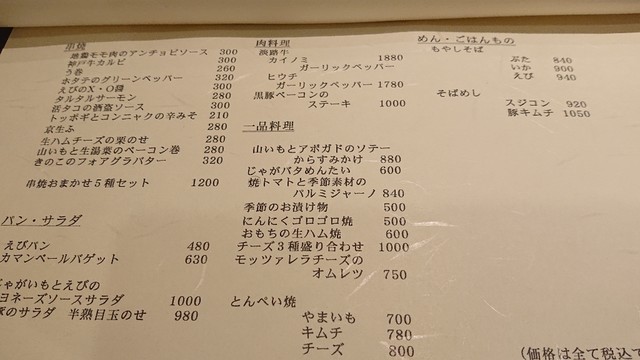 串焼
地鶏モモ肉のアンチョビソース 300
神戸牛カルビ 300
う巻 260
ホタテのグリーンペッパー 320
えびのX・O醤 300
タルタルサーモン 280
活タコの酒盗ソース 300
トッポギとコンニャクの辛みそ 210
京生ふ 280
生ハムチーズの栗のせ 280
山いもと生湯葉のベーコン巻 280
きのこのフォアグラバター 320
串焼おまかせ5種セット 1200
パン・サラダ
えびパン 480
カマンベールバゲット 630
ゃがいもとえびの
ヨネーズソースサラダ 1000
のサラダ 半熟目玉のせ 980
肉料理
淡路牛
カイノミ 1880
ガーリックペッパー
ヒウチ
ガーリックペッパー 1780
黒豚ベーコンの
ステーキ 1000
一品料理
山いもとアボガドのソテー
からすみかけ 880
じゃがバタめんたい 600
焼トマトと季節素材の
パルミジャーノ 840
季節のお漬け物 500
にんにくゴロゴロ焼 500
おもちの生ハム焼 600
チーズ3種盛り合わせ 1000
モッツァレラチーズの
オムレツ 750
とんぺい焼
やまいも 700
キムチ 780
チーズ 800
めん・ごはんもの
もやしそば
ぶた 840
いか 900
えび 940
そばめし
スジコン 920
豚キムチ 1050
(価格は全て税込